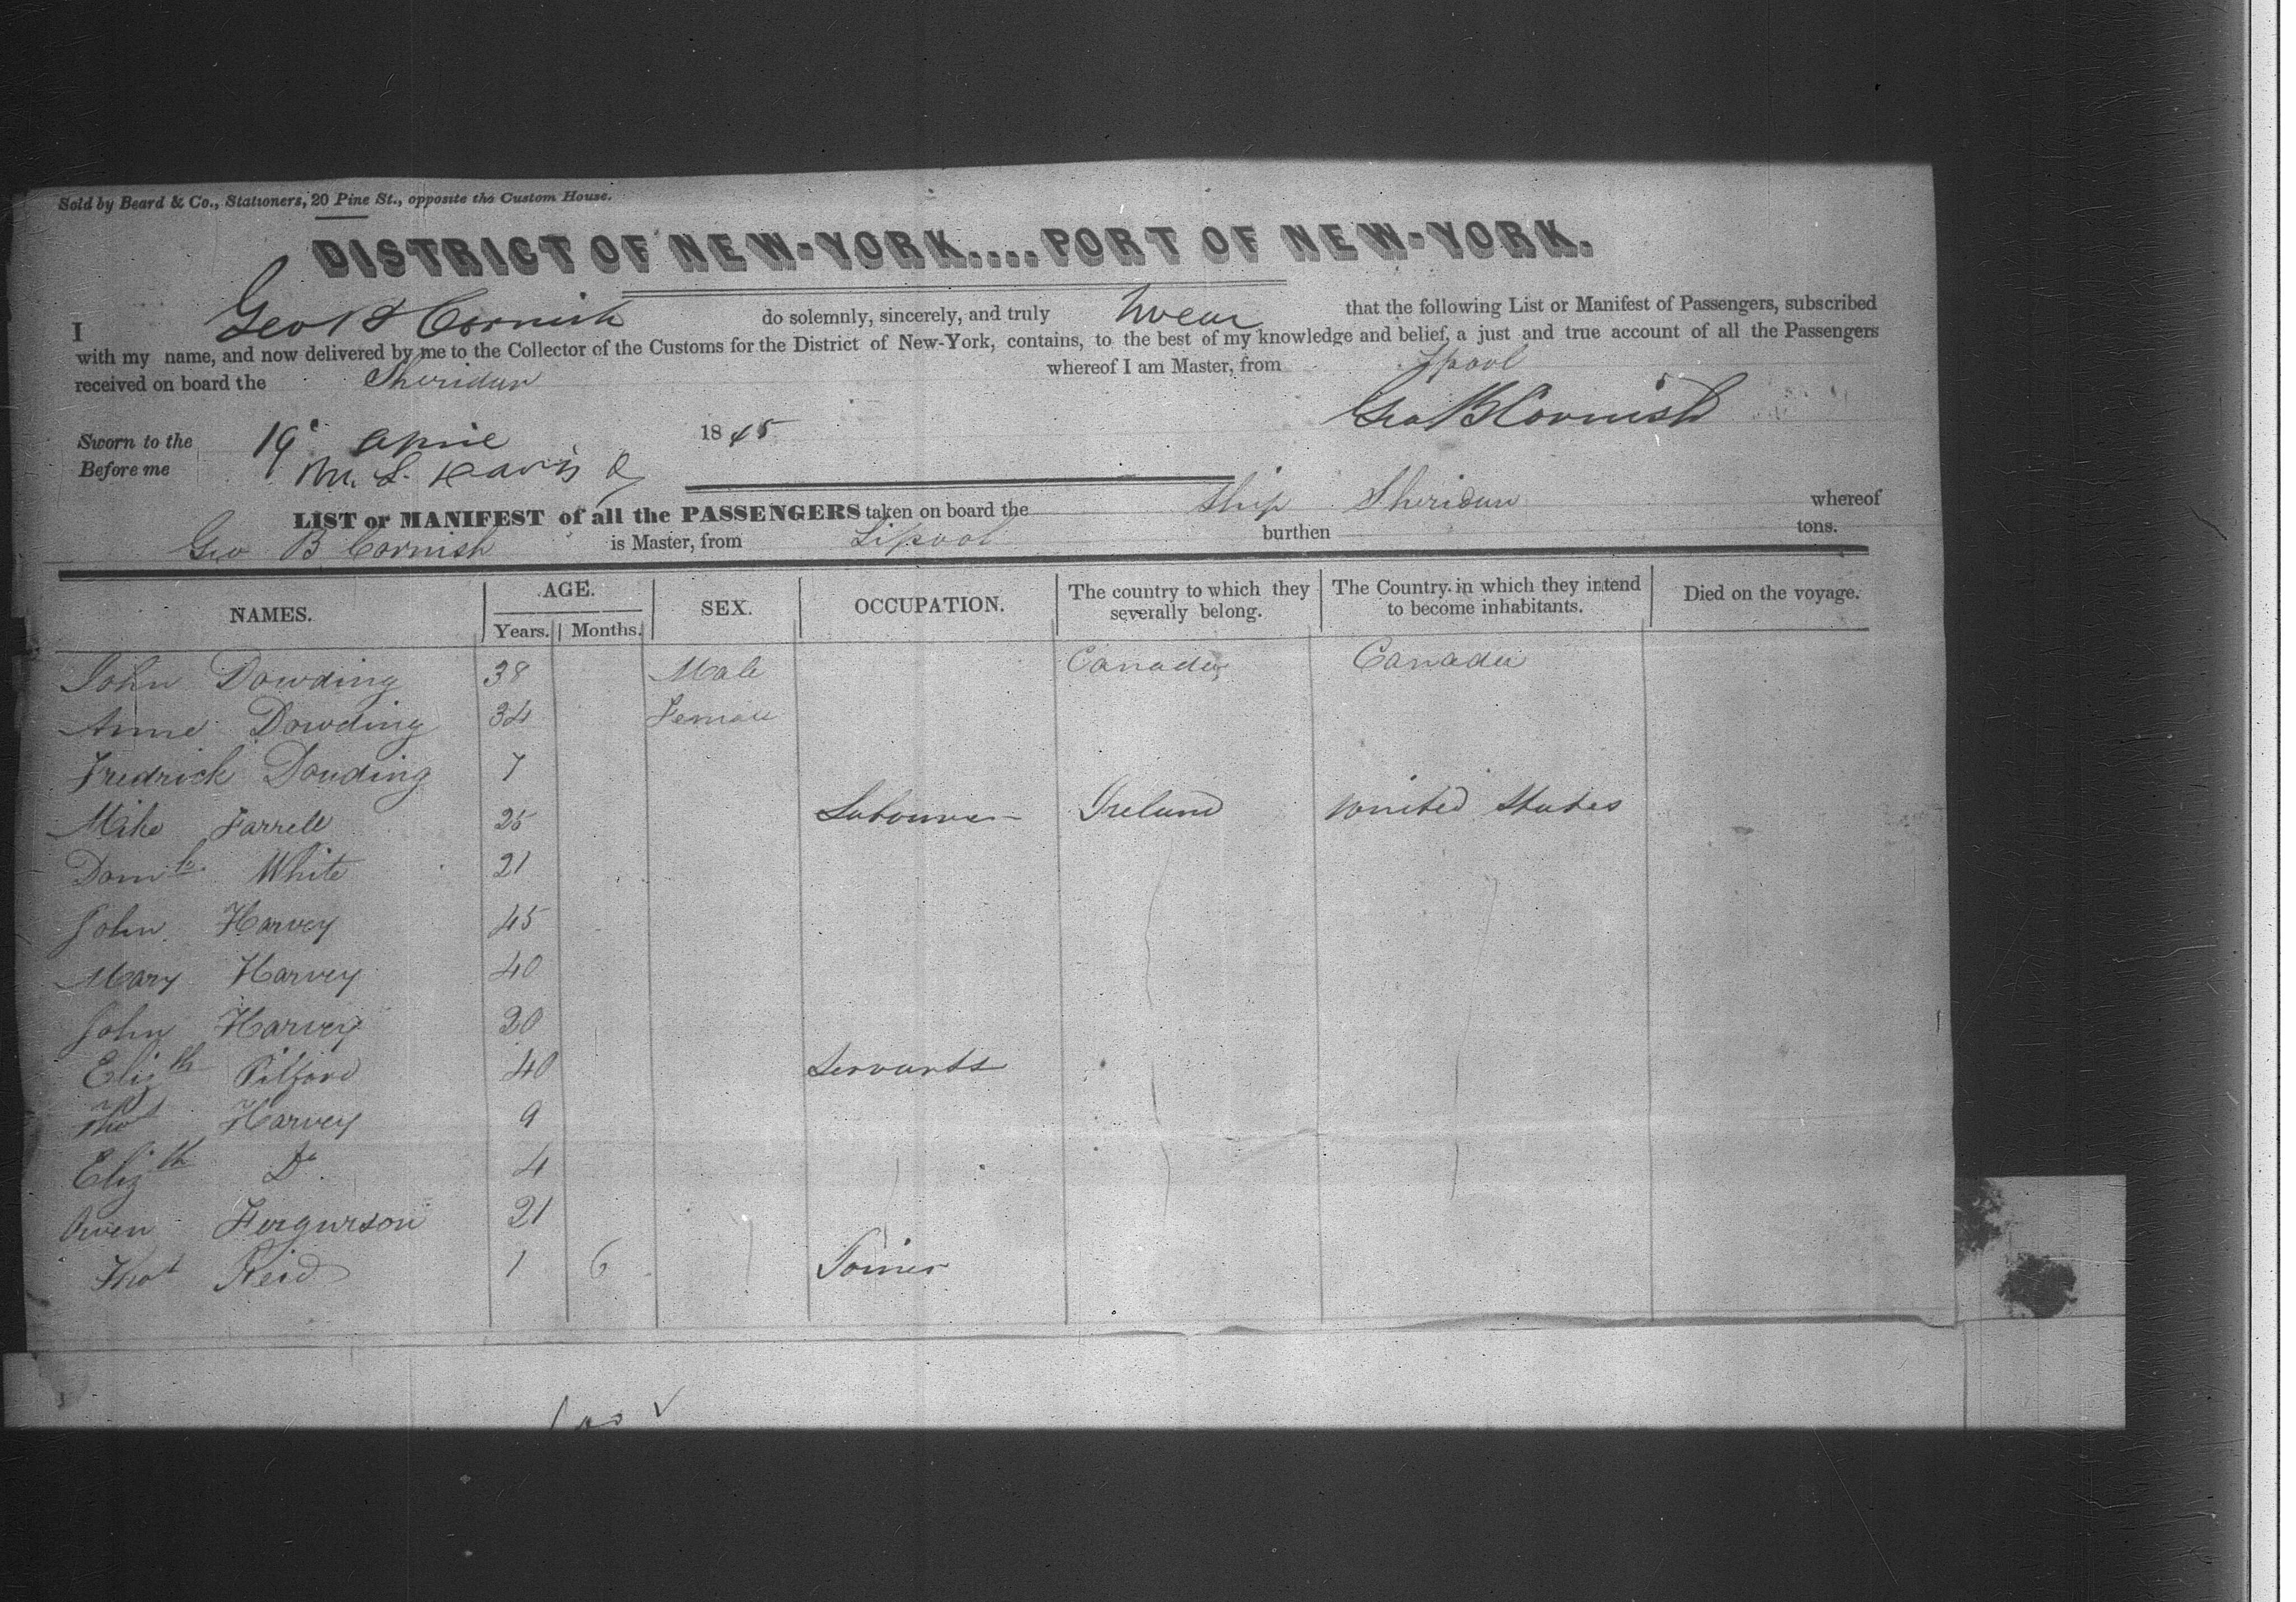 Sold by Beard & Co., Stationers, 20 Pine St., opposite the Custom House.
DISTRICT OF NEW-YORK....PORT OF NEW-YORK.
I Geo B Cornish do solemnly, sincerely, and truly swear that the following List or Manifest of Passengers, subscribed
with my name, and now delivered by me to the Collector of the Customs for the District of New-York, contains, to the best of my knowledge and belief, a just and true account of all the Passengers
received on board the Sheridan whereof I am Master, from Lpool
Geo B Cornish
Sworn to the 19 April 1845
Before me M. L. Davis
LIST or MANIFEST of all the PASSENGERS taken on board the Ship Sheridan whereof
Geo B Cornish is Master, from Lipool burthen tons.
NAMES. AGE. SEX. OCCUPATION. The country to which they severally belong. The Country in which they intend to become inhabitants. Died on the voyage.
Years. Months.
John Dowding 38 Male Canada Canada
Anne Dowding 34 Female
Fredrick Douding 7
Mike Farrell 25 Labourer Ireland United States
White 21
John Harvey 45
Mary Harvey 40
John Harvey 20
Elizth Pilford 40 Servants
Thos Harvey 9
Elizth Do 4
Owen Fergurson 21
Thos Reid 1 6 Joiner